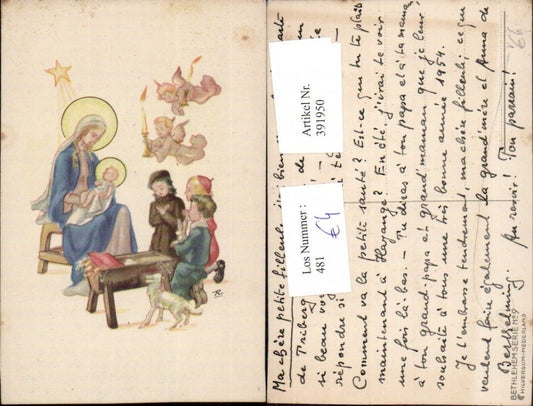 Ma chère petite filleule,
de Triberg de
si beau
répondre si
Comment va la petite santé? Est-ce que tu te plais
maintenant à Hayange? En été, j'irai te voir
une fois là-bas. – Tu diras à ton papa et à ta maman,
à ton grand-papa et grand'maman que je leur
souhaite à tous une très bonne année 1954.
Je t'embrasse tendrement, ma chère filleule, ce que
veulent faire également la grand'mère et Anna de
Au revoir! Ton parrain!
BETHLEHEM SERIE Nº 9
HILVERSUM-NEDERLAND
Artikel Nr.
391950
Los Nummer :
481
€ 4